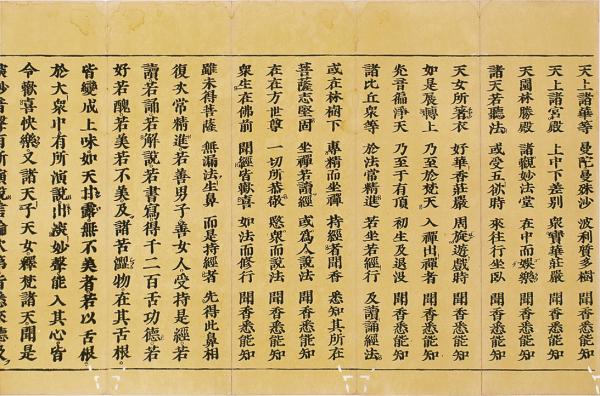 天上諸華等 曼陀曼殊沙 波利質多樹 聞香悉能知
天上諸宮殿 上中下差別 衆寶華莊嚴 聞香悉能知
天園林勝殿 諸觀妙法堂 在中而娛樂 聞香悉能知
諸天若聽法 或受五欲時 來往行坐臥 聞香悉能知
天女所著衣 好華香莊嚴 周旋遊戲時 聞香悉能知
如是展轉上 乃至於梵天 入禪出禪者 聞香悉能知
光音徧淨天 乃至于有頂 初生及退没 聞香悉能知
諸比丘衆等 於法常精進 若坐若經行 及讀誦經法
或在林樹下 專精而坐禪 持經者聞香 悉知其所在
菩薩志堅固 坐禪若讀經 或爲人說法 聞香悉能知
在在方世尊 一切所恭敬 愍衆而說法 聞香悉能知
衆生在佛前 聞經皆歡喜 如法而修行 聞香悉能知
雖未得菩薩 無漏法生鼻 而是持經者 先得此鼻相
復次常精進若善男子善女人受持是經若
讀若誦若解說若書寫得千二百舌功德若
好若醜若美若不美及諸苦澀物在其舌根
皆變成上味如天甘露無不美者若以舌根
於大衆中有所演說出深妙聲能入其心皆
令歡喜快樂又諸天子天女釋梵諸天聞是
深妙音聲有所演說言論次第皆悉來聽及